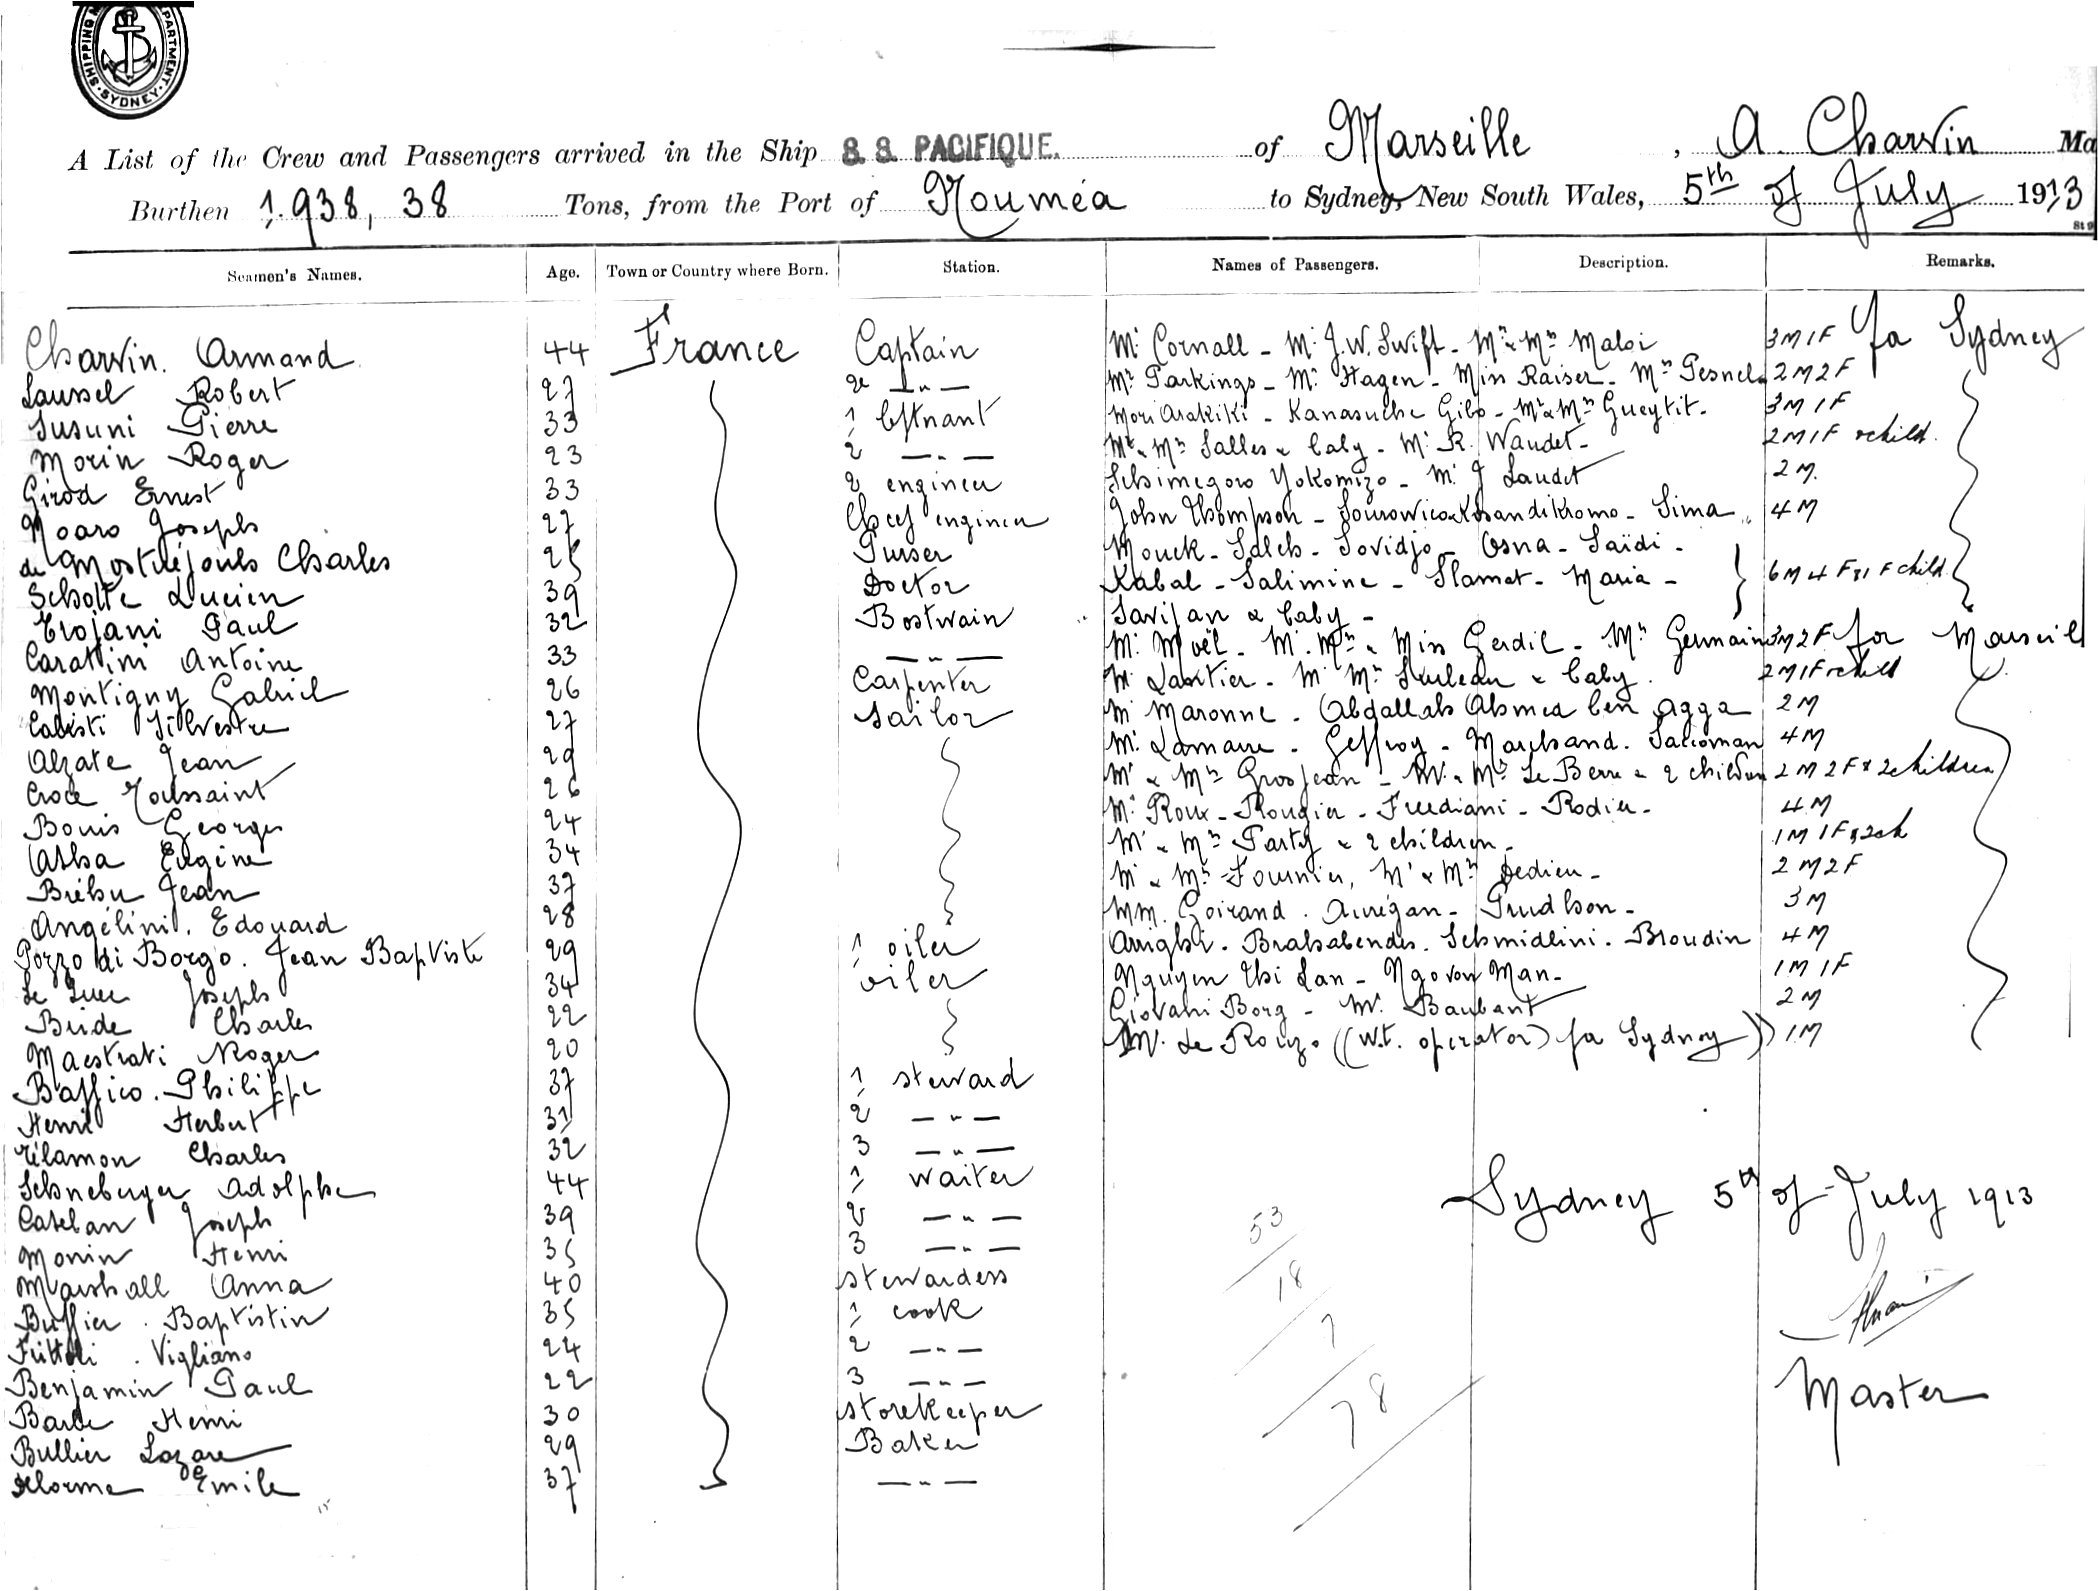 SHIPPING DEPARTMENT SYDNEY
A List of the Crew and Passengers arrived in the Ship S. S. PACIFIQUE. of Marseille, A. Charvin Ma
Burthen 1.938,38 Tons, from the Port of Nouméa to Sydney, New South Wales, 5th of July 1913
Seamen's Names. Age. Town or Country where Born. Station. Names of Passengers. Description. Remarks.
Charvin. Armand 44 France Captain Mr Cornall - Mr J.W. Swift - Mr & Mrs Maloi 3M 1F for Sydney
Laussel Robert 27 2e — " — Mr Parkings - Mr Hagen - Miss Raiser - Mrs Pesnel 2M 2F
Susuni Pierre 33 1 Lftnant Mori Arakiki - Kanasuche Gibo - Mr & Mrs Gueytit - 3M 1F
Morin Roger 23 2 — " — Mr & Mrs Salles & baby - Mr R. Waudet - 2M 1F & child.
Girod Ernest 33 2 engineer Schimegoro Yokomizo - Mr J Laudet 2M.
Noaro Joseph 27 Cheef engineer John Thompson - Sourowico & Kosandikromo - Sima 4M
de Mostuéjouls Charles 25 Purser Mouck - Saleh - Sovidjo - Osna - Saïdi -
Scholte Lucien 39 Doctor Kabal - Salimine - Slamat - Maria - 6M 4F & 1 F child
Trojani Paul 32 Bostwain Sarijan & baby -
Carattini Antoine 33 — " — Mr Moël - Mr Mrs & Miss Gerdil - Mrs Germain 3M 2F for Marseil
Montigny Gabriel 26 Carpenter Mr Lartier - Mr Mrs & baby. 2M 1F & child
Calisti Silvestre 27 Sailor Mr Maronne - Abdallah Ahmed ben Agga 2M
Alzate Jean 29 Mr Lamaire - Geffroy - Marchand. Salioman 4M
Croce Toussaint 26 Mr & Mrs Grosjean - Mr & Mrs Le Berre & 2 children 2M 2F & 2 children
Bouis Georges 24 Mr Roux - Rougier - Freediani - Rodier - 4M
Attia Eugène 34 Mr & Mrs Party & 2 children - 1M 1F & 2ch
Bréhu Jean 37 Mr & Mrs Fournier, Mr & Mrs Dedieu - 2M 2F
Angélini. Edouard 28 MM. Goirand. Aurégan - Prudhon - 3M
Pozzo di Borgo. Jean Baptiste 29 1 oiler Arrighi. Brahabendis. Schmidlini. Broudin 4M
Le Luer Joseph 34 oiler Nguyen thi Lan - Ngo von Man - 1M 1F
Bride Charles 22 Giovani Borg - Mr. Baubant 2M
Maestrati Roger 20 Mr. de Rouzo ((w.t. operator) for Sydney)) 1M
Baffico. Philippe 37 1 steward
Henri Herbert 31 2 — " —
Télamon Charles 32 3 — " —
Schneberger Adolphe 44 1 waiter
Catelan Joseph 39 2 — " — Sydney 5th of July 1913
Monin Henri 35 3 — " — 53
Marshall Anna 40 stewardess 18
Buffier. Baptistin 35 1 cook
Frittoli. Vigliano 24 2 — " — 7
Benjamin Paul 22 3 — " — Master
Barbe Henri 30 storekeeper 78
Bullier Lazare 29 Baker
Delorme Emile 37 — " —